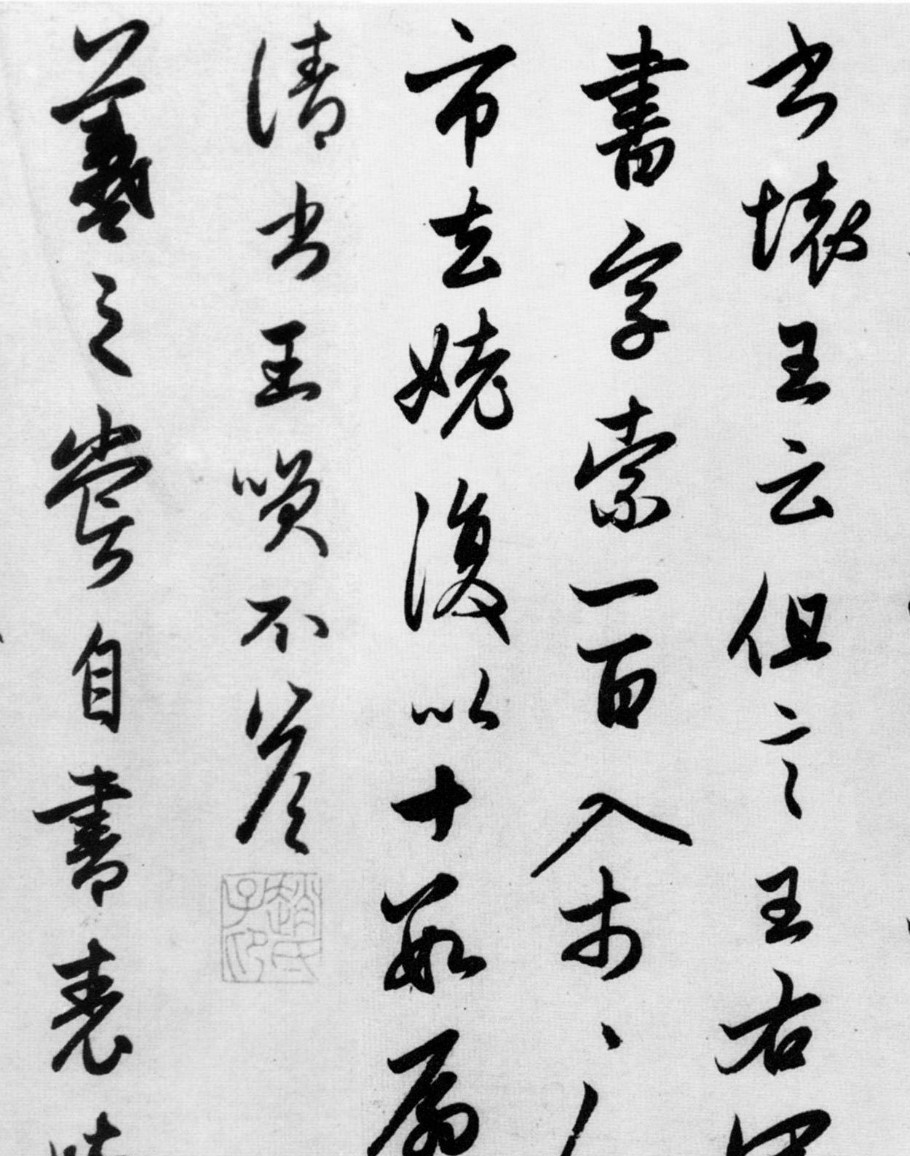 書壞王云但言王右軍
書字索一百入市〻人
市去姥復以十數扇
請書王咲不答
羲之嘗自書表
趙氏子昂